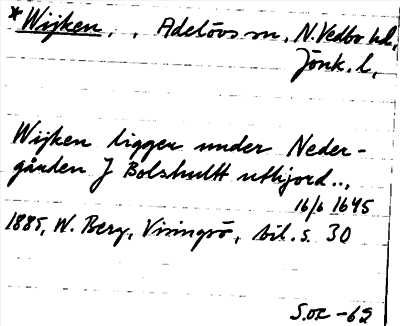 *Wijken, , Adelövs sn, N. Vedbo hd,
Jönk. l,
Wijken ligger under Neder-
gården J Bolshultt uthjord..,
16/6 1645
1885, W. Berg, Visingsö, bil. s. 30
S.OR -62